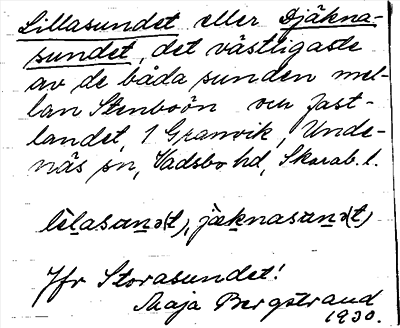 Lillasundet eller Djäkna-
sundet, det västligaste
av de båda sunden mel-
lan Stenboön och fast-
landet, 1 Granvik, Unde-
näs sn, Vadsbo hd, Skarab. l.
jæknasanə(t)
Jfr Storasundet!
Maja Bergstrand
1930.